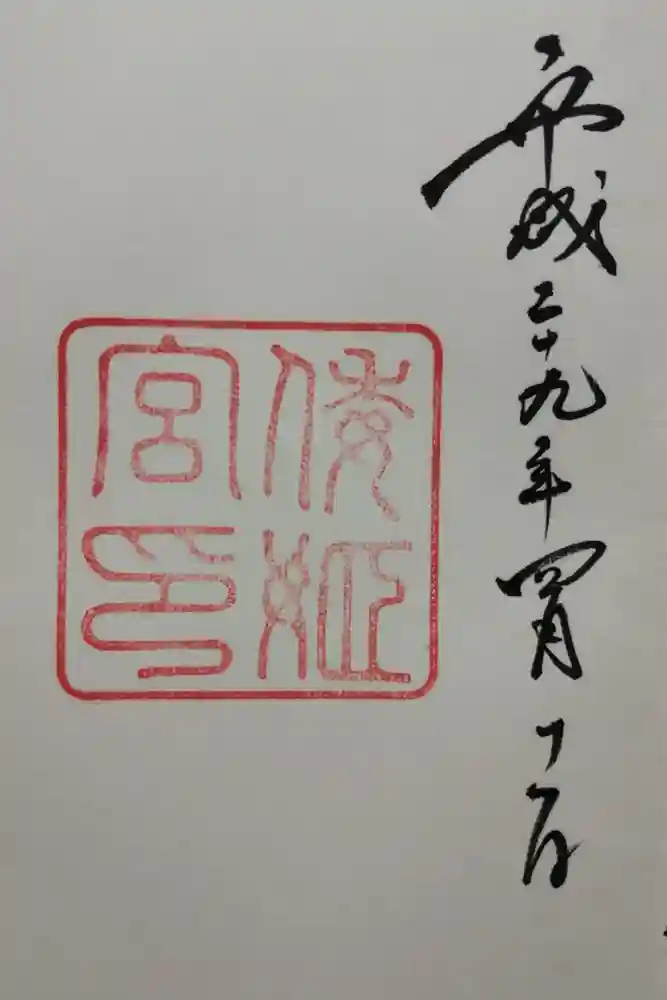 平成二十九年四月
倭姫
宮印